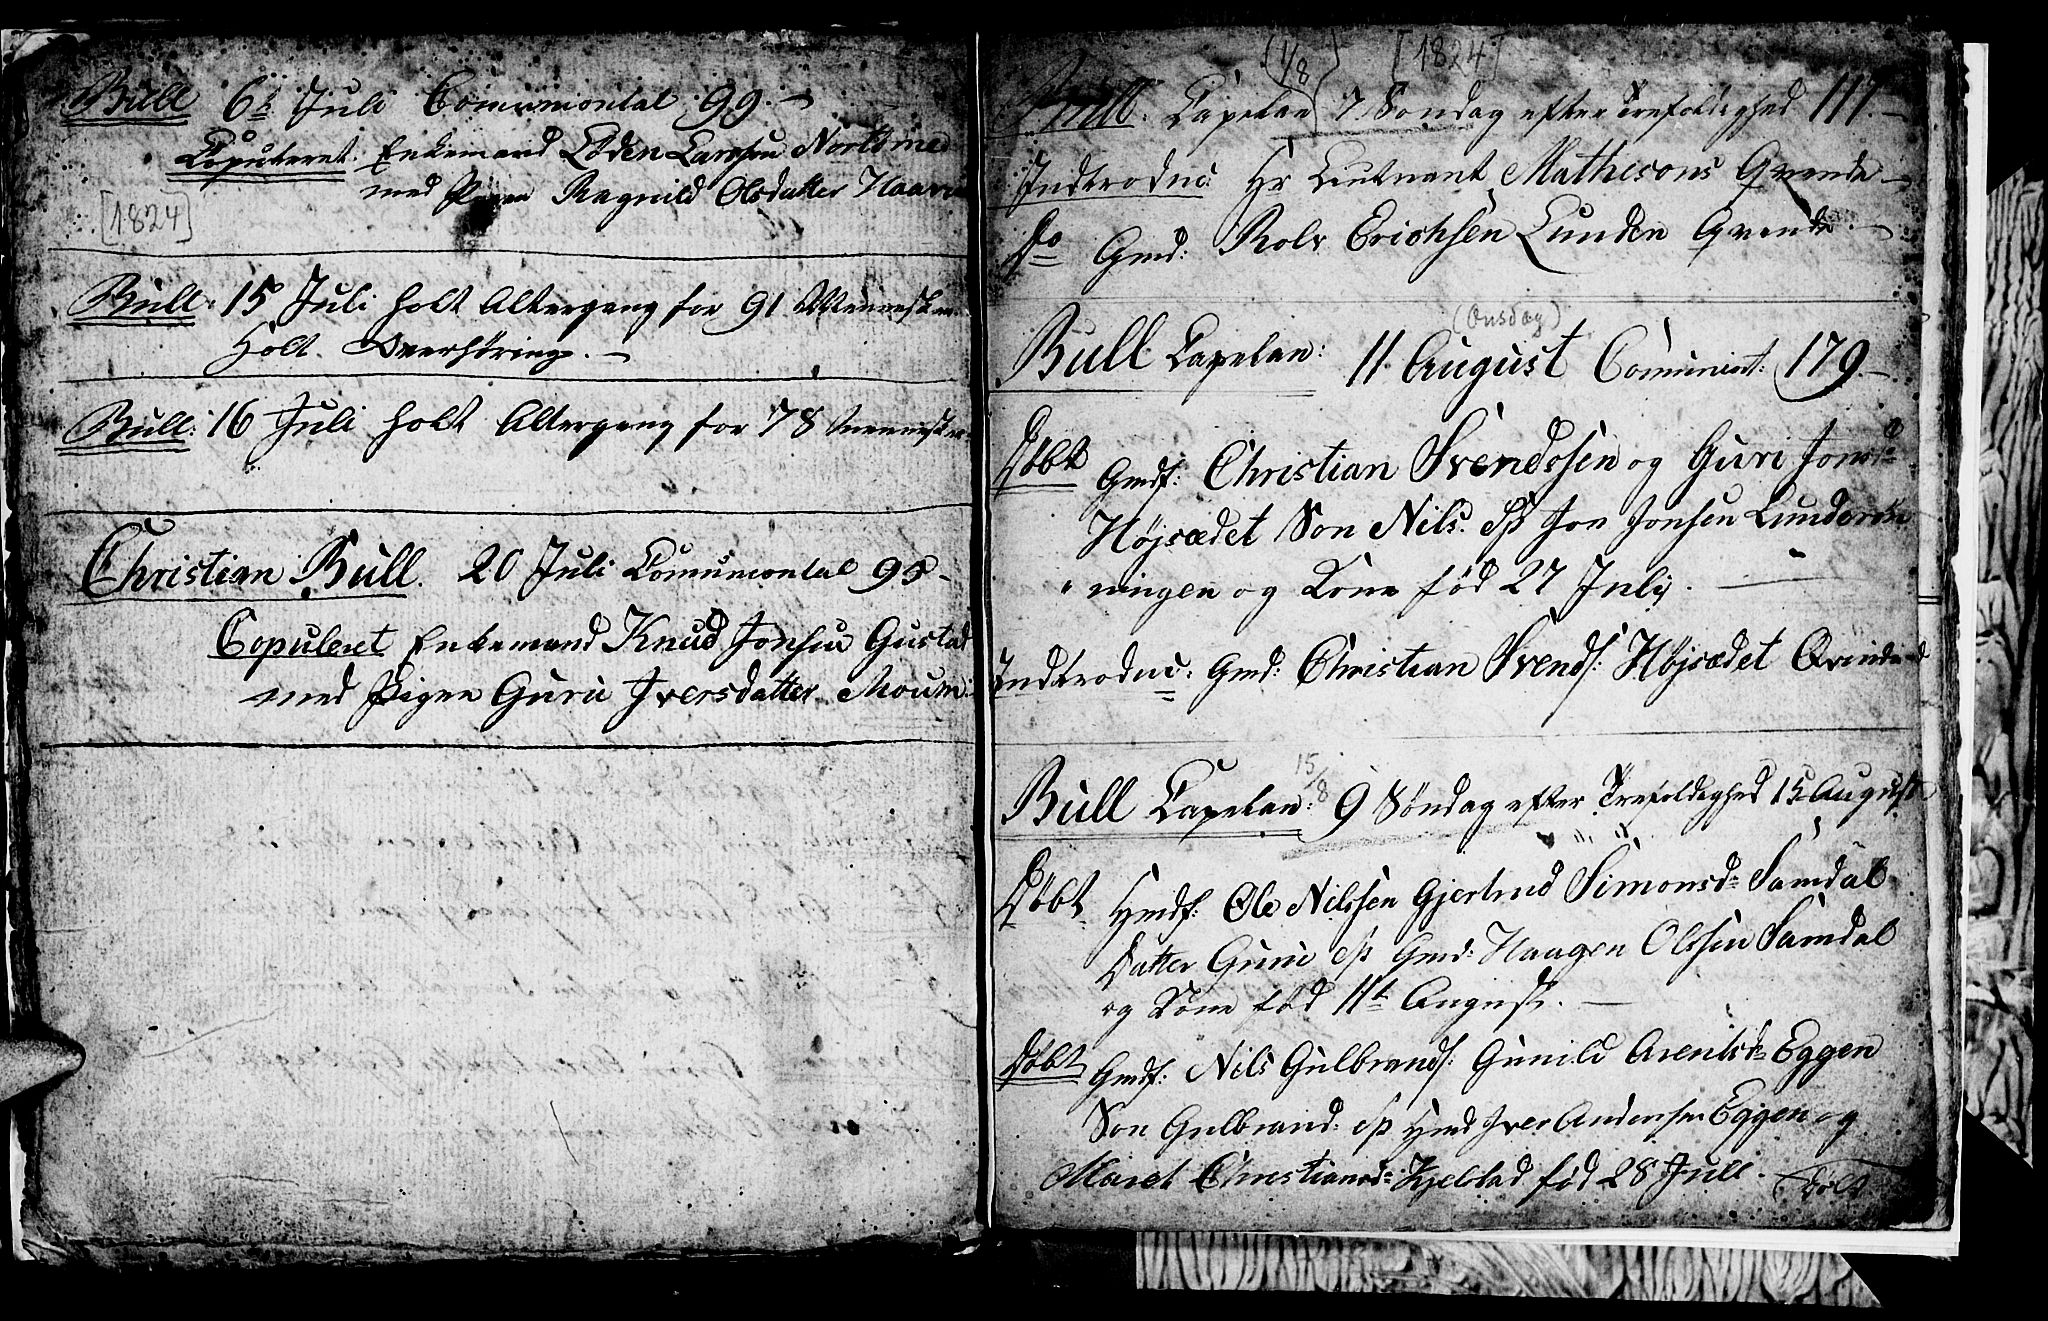 Bull 6t Juli Comunicontal 99.
Copuleret. Enkemand Loden Larssen Nordtmo
med Pigen Ragnild Olsdatter Haave
[1824]
Bull: 15 Juli holt Altergang for 91 Mennesker
Holt Overhöring.
Bull: 16 Juli holt Altergang for 78 Mennesker
Christian Bull. 20 Juli Comunicontal 95
Copuleret Enkemand Knud Jonsen Gustad
med Pigen Guru Iversdatter Moum
(1/8) [1824]
Bull. Capelan 7 Söndag efter Trefoldighed 117.
Indtroduc: Hr Leutnant Mathesons Qvende
do Gmd: Rolv Erichsen Lunden Qvende.
(Onsdag)
Bull Capelan: 11 August Comunicat: 179.
Döbt Gmdf: Christian Svendssen og Guri Jonsd
Højsædet Son Nils. Sp Jon Jonsen Lunderöe
ningen og Kone född 27 Julij.
Indtroduc: Gmd: Christian Svends: Højsædet Qvinde
15/8
Bull Capelan: 9 Söndag efter Trefoldighed 15 August
Döbt Hmdf: Ole Nilssen Gjertrud Simonsd: Samdal
Datter Guru Sp Gmd: Haagen Olssen Samdal
og Kone föd 11t August.
Döbt Gmdf: Nils Gulbrands: Gunild Arentsd: Eggen
Son Gulbrand: Sp Hmd Iver Andersen Eggen og
Maret Christiansd: Kjelstad föd 28 Juli. Döbt